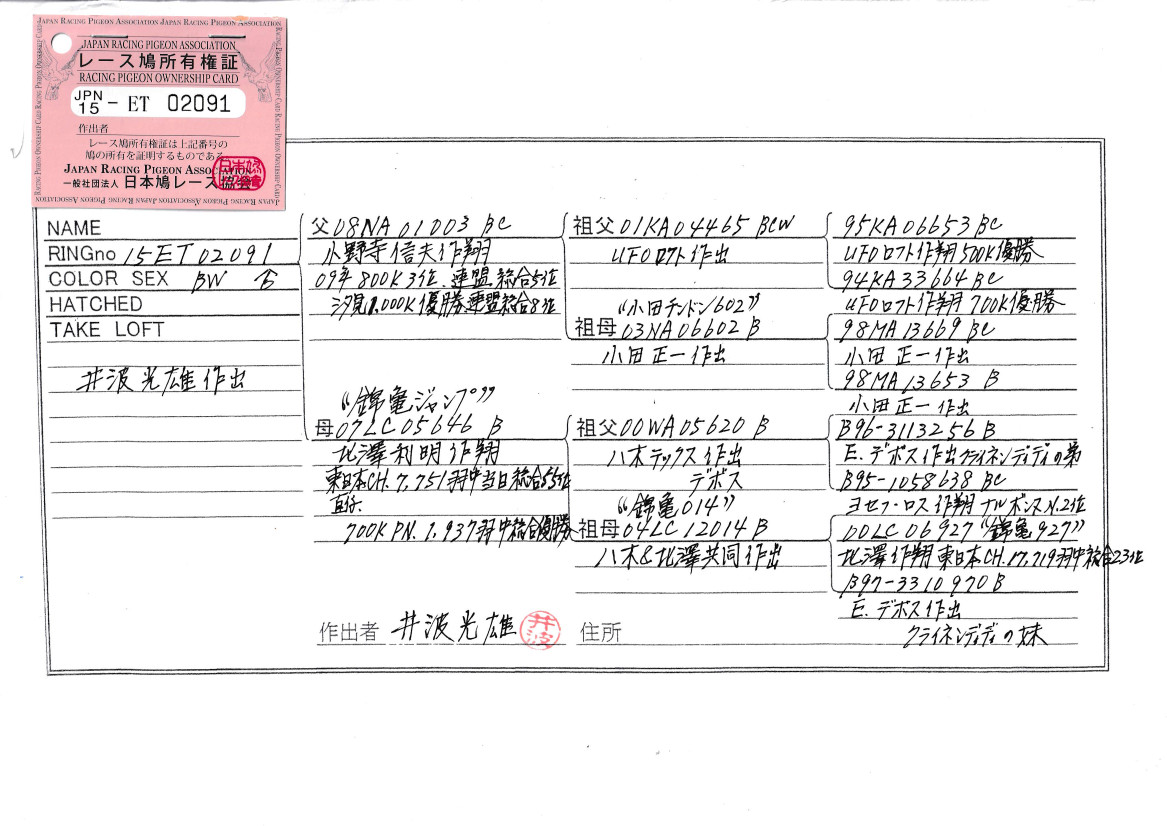 JAPAN RACING PIGEON ASSOCIATION JAPAN RACING PIGEON ASSOCIATION
JAPAN RACING PIGEON ASSOCIATION
レース鳩所有権証
RACING PIGEON OWNERSHIP CARD
JPN
15 - ET 02091
作出者
レース鳩所有権証は上記番号の
鳩の所有を証明するものである
JAPAN RACING PIGEON ASSOCIATION
一般社団法人 日本鳩レース協会
NAME
RINGno 15ET02091
COLOR SEX BW 合
HATCHED
TAKE LOFT
井波光雄作出
父08NA01003 BC
小野寺信夫作翔
09年800K3位、連盟総合5位
汐見1.000K優勝、連盟総合8位
“錦亀ジャンプ”
母07LC05646 B
北澤利明作翔
東日本CH.7,751羽中当日総合55位
直仔
700K PN.1,937羽中総合優勝
祖父01KA04465 BCW
UFOロフト作出
“小田チンドン602”
祖母03NA06602 B
小田正一作出
祖父00WA05620 B
八木テックス作出
デボス
“錦亀014”
祖母04LC12014 B
八木&北澤共同作出
95KA06653 BC
UFOロフト作翔500K優勝
94KA33664 BC
UFOロフト作翔700K優勝
98MA13669 BC
小田正一作出
98MA13653 B
小田正一作出
B96-3113256 B
E.デボス作出クライネンディディの弟
B95-1058638 BC
ヨセフ・ロス作翔ナルボンヌN.2位
00LC06927“錦亀927”
北澤作翔東日本CH.17,719羽中総合23位
B97-3310970 B
E.デボス作出
クライネンディディの妹
作出者 井波光雄 井波
住所